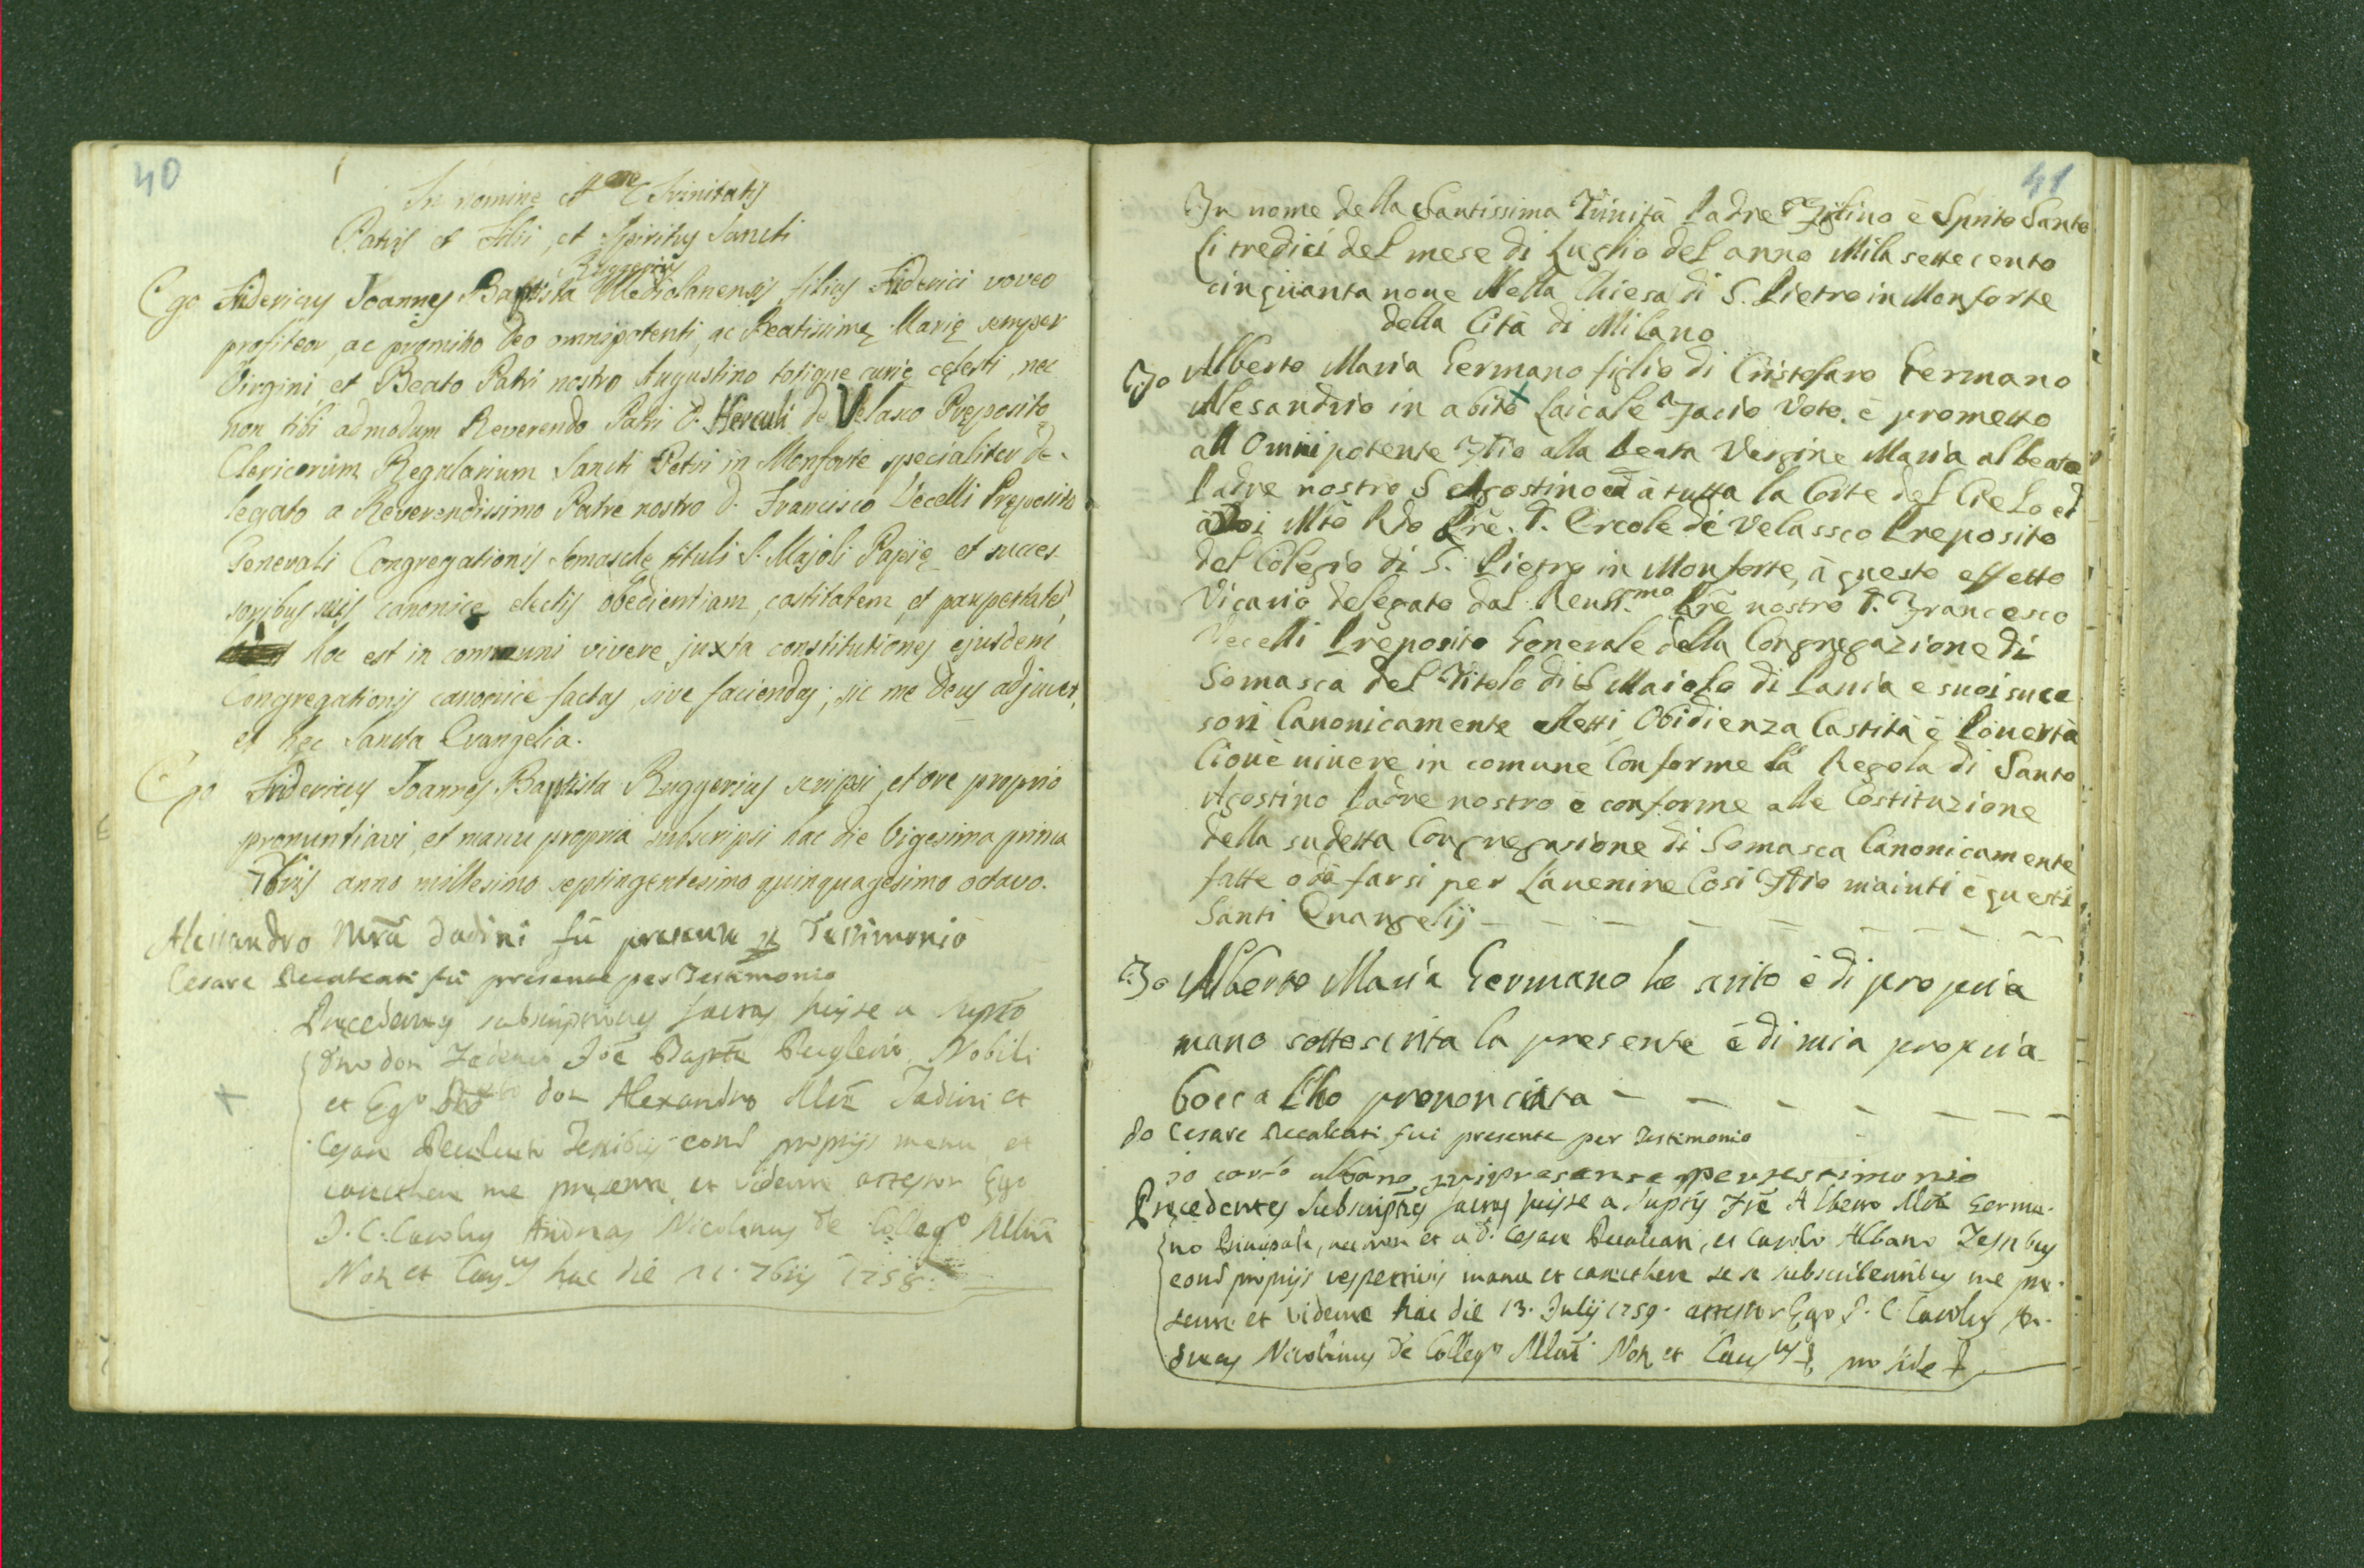 40
In nomine SSmae Trinitatis
Patris et Filii, et Spiritus Sancti
Ruggerius
Ego Fidericus Joannes Baptista Mediolanensis filius Fiderici voveo
profiteor, ac promitto Deo omnipotenti, ac Beatissimę Marię semper
Virgini, et Beato Patri nostro Augustino totique curię cęlesti, nec
non tibi admodum Reverendo Patri D. Herculi de Velasco Pręposito
Clericorum Regularium Sancti Petri in Monforte specialiter de-
legato a Reverendissimo Patre nostro D. Francisco Vecelli Pręposito
Generali Congregationis Somaschę tituli S. Majoli Papię et succes-
soribus suis canonicę electis obedientiam, castitatem, et paupertatē,
hoc est in communi vivere juxta constitutiones ejusdem
Congregationis canonice factas, sive faciendas; sic me Deus adjuvet,
et hęc Sancta Evangelia.
Ego Fidericus Joannes Baptista Ruggerius scripsi, et ore proprio
pronuntiavi, et manu propria subscripsi hac die Vigesima prima
7bris anno millesimo septingentesimo quinquagesimo octavo.
Alessandro Mrā Dadini fū presente Testimonio
Cesare Recalcati fū presente per Testimonio
Pręcedentes subscriptiones factas fuisse a
Joē Baptā Nobili
et Don Alexandro et
Cesare Testibus propriis manu et
me presente, et vidente attestor Ego
J. C. Carolus Andreas Nicolinus de Collegº
Not et hac die 21. 7bris 1758.
41
In nome della Santissima Trinità Padre Figlino è Spirito Santo
li tredici del mese di Luglio del anno Mila sette cento
cinquanta noue Nella Chiesa di S. Pietro in Monforte
della Cità di Milano
Io Alberto Maria Germano figlio di Cristofaro Germano
Alesandrio in abito laicale Facio Voto. è prometto
all Omnipotente Idio alla beata Vergine Maria al beato
Padre nostro S Agostino ed à tutta la Corte del Cielo ed
à Voi Mtō Rdo Prē. D. Ercole de Velassco Preposito
del Colegio di S. Pietro in Monforte, à questo effetto
Vicario delegato dal Reuermo Prē nostro D. Francesco
Vecelli Preposito Generale della Congregazione di
Somasca del Titolo di S Maiolo di Pauia e suoi suce
sori Canonicamente eletti Obidienza Castità è Pouertà
Cioué uiuere in comune Conforme la Regola di Santo
Agostino Padre nostro è conforme alle Costituzione
della sudetta Congregasione di Somasca Canonicamente
fatte o dà farsi per l'auenire Cosi Idio m'aiuti è questi
Santi Euangelij
Io Alberto Maria Germano ho scrito è di propria
mano sottoscrita la presente è di mia propria
bocca l'ho prononciata
Io Cesare Recalcati fui presente per Testimonio
io carlo albano fui presente per testimonio
Pręcedentes Subscriptēs factas fuisse a Alberto Germa-
no Principali, nec non et a D. Cesare Recalcati, et Carolo Albano Testibus
propriis respective manu et caractere se se subscribentibus me prę-
sente et vidente hac die 13. Julij 1759. attestor Ego J. C. Carolus An-
dreas Nicolinus de Collegº Not et pro fide